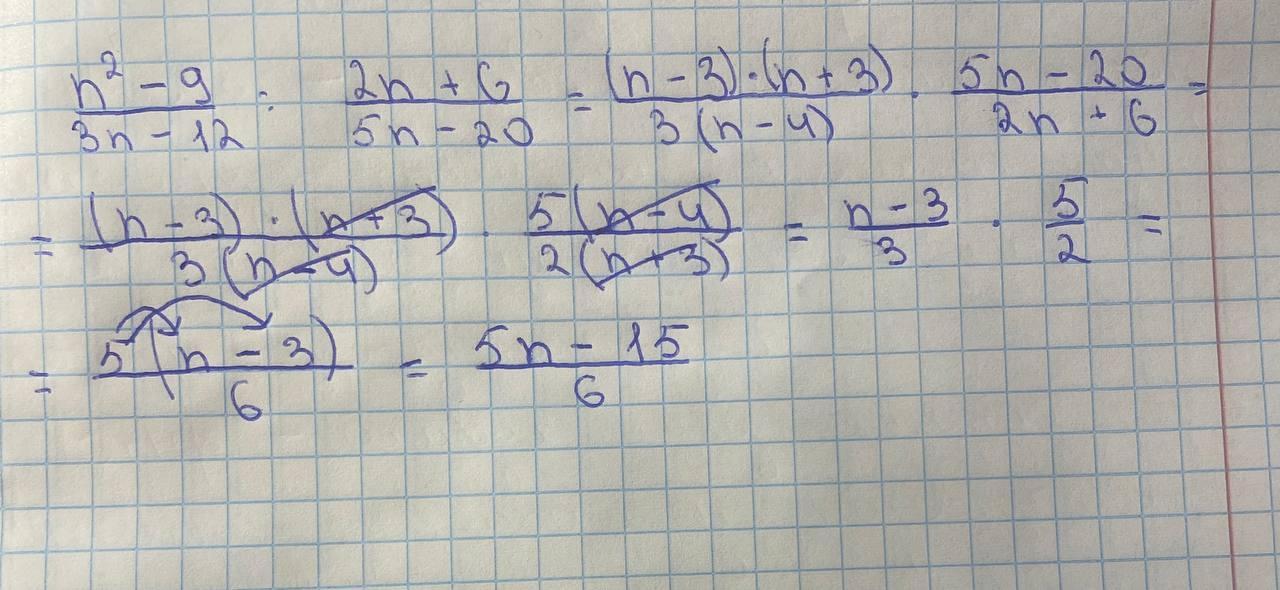 (n² - 9)/(3n - 12) : (2n + 6)/(5n - 20) = ((n - 3)·(n + 3))/(3(n - 4)) · (5n - 20)/(2n + 6) =
= ((n - 3)·(n + 3))/(3(n - 4)) · (5(n - 4))/(2(n + 3)) = (n - 3)/3 · 5/2 =
= (5(n - 3))/6 = (5n - 15)/6